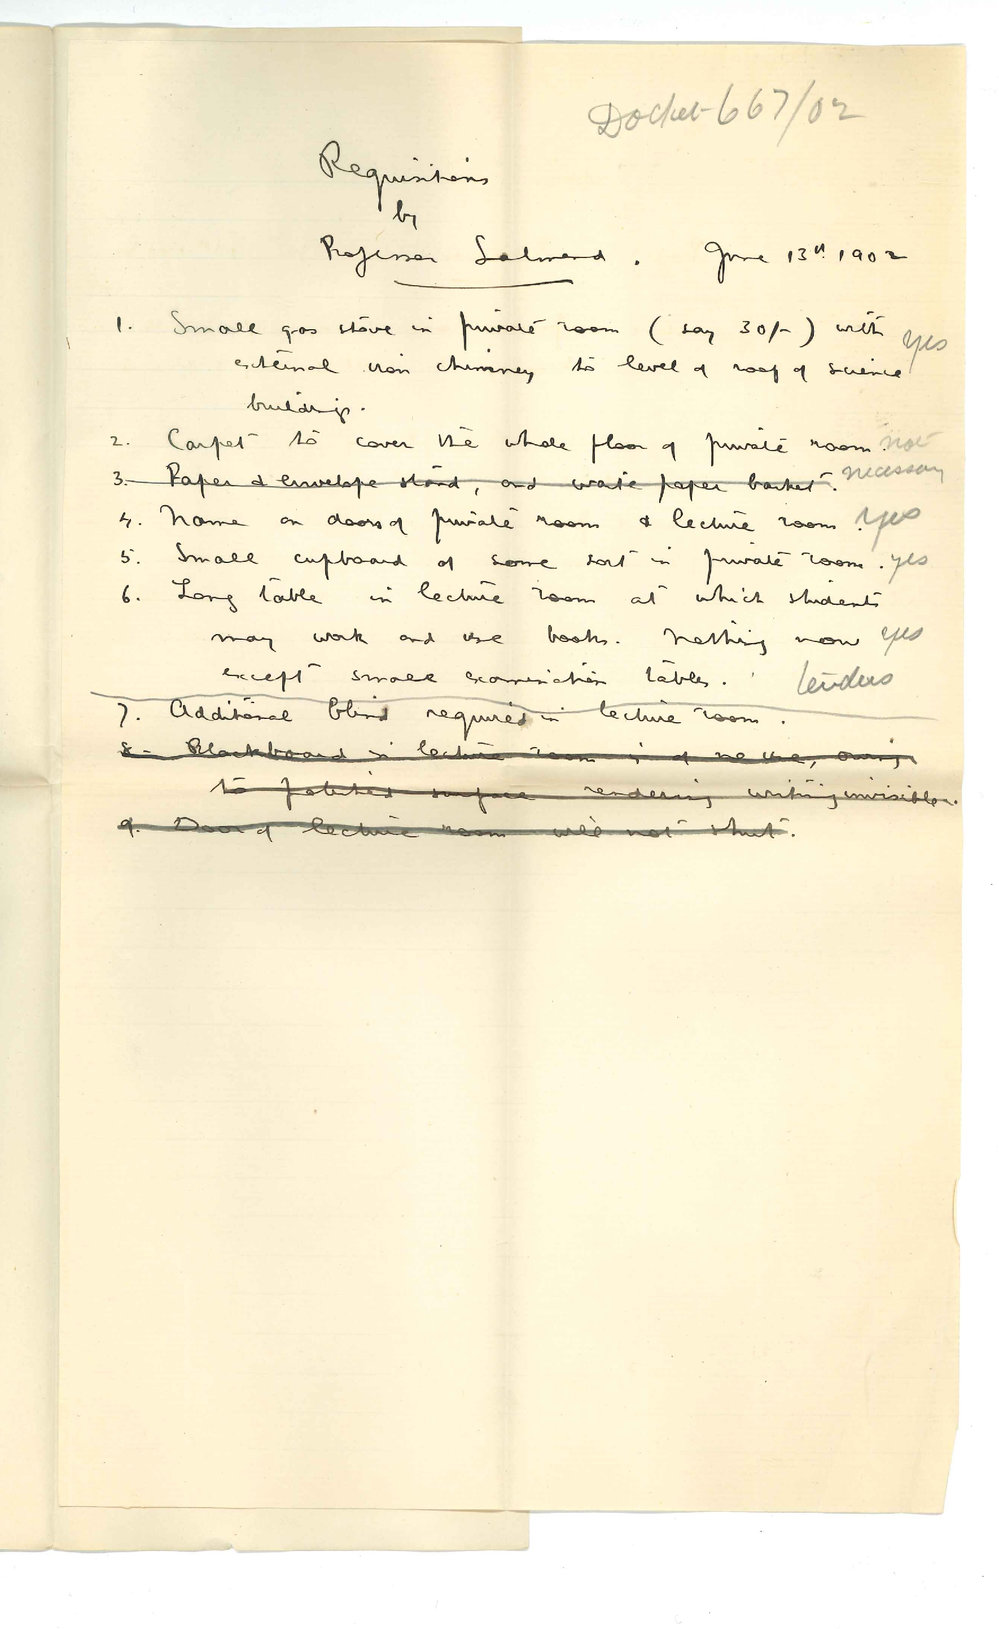 Docket 667/02
Requisitions
by
Professor Salmond. June 13th 1902
1. Small gas stove in private room (say 30/-) with yes
external iron chimney to level of roof of science
building.
2. Carpet to cover the whole floor of private room. not
necessary
3. Paper & envelope stand, and waste paper basket.
4. Name on doors of private room & lecture room. yes
5. Small cupboard of some sort in private room. yes
6. Long table in lecture room at which students
may work and use books. Nothing now yes
except small examination tables. tenders
7. Additional blind required in lecture room.
8. Blackboard in lecture room is of no use, owing
to polished surface rendering writing invisible.
9. Door of lecture room will not shut.